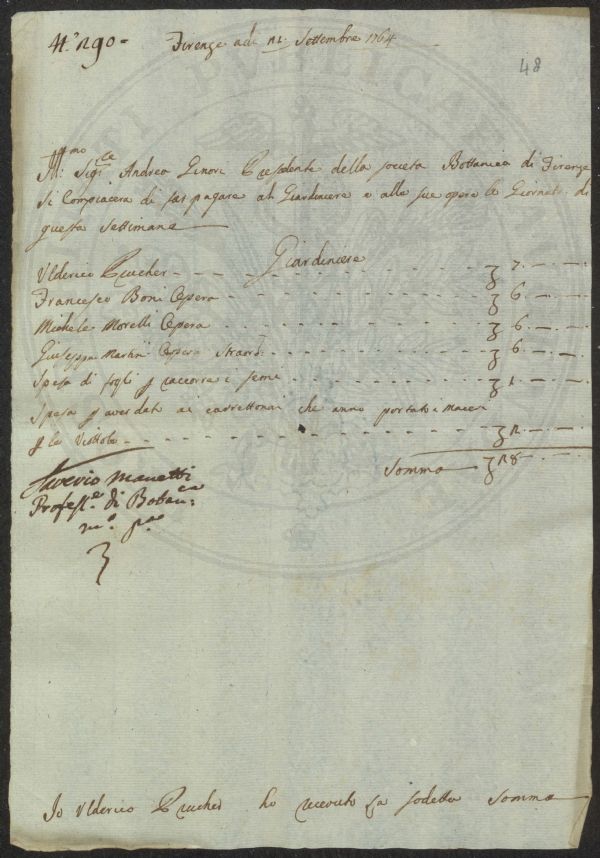 N.° 290=
Firenze adì 21. Settembre 1764
48
Ill:mo Sig:re Andrea Ginori Presidente della società Bottanica di Firenze
Si Compiacerà di far pagare al Giardiniere e alle sue opere le Giornate di
questa Settimana
Giardiniere
Ulderico Prucher - - - 7. - . -
Francesco Boni Opera - - - 6 - . -
Michele Morelli Opera - - - 6 . - . -
Giuseppe Martini Opera Straord. - - - 6 - . -
Spesa di fogli p raccorre i semi - - - 1 . - . -
Spesa p aver dato ai carrettonai che anno portato i Macer
p le Viottole - - - 2 . - . -
Somma 28 . - . -
Saverio Manetti
Profess.e di Botan:ca
m.o p.a
Io Ulderico Prucher ho ricevuto la sodetta somma